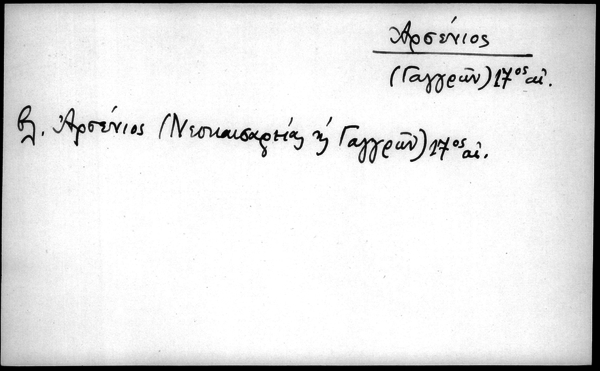 Ἀρσένιος
(Γαγγρῶν) 17ος αἰ.
βλ. Ἀρσένιος (Νεοκαισαρείας ἤ Γαγγρῶν) 17ος αἰ.